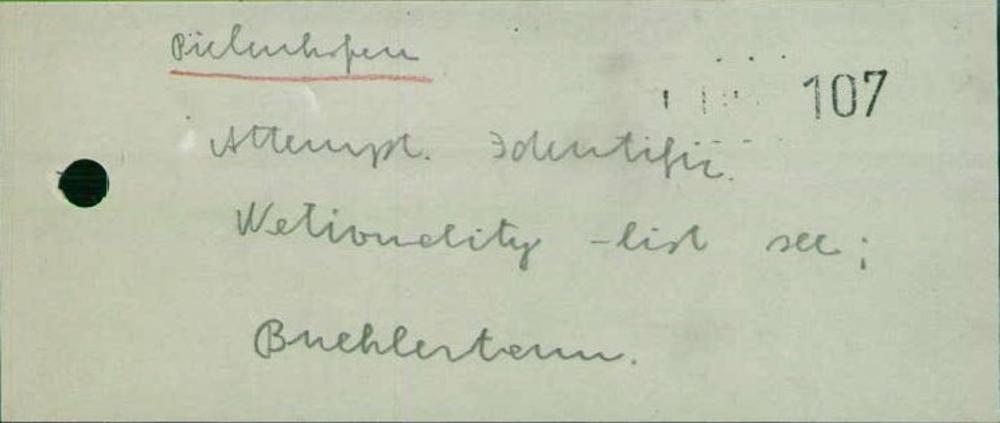 Pielenhofen
107
Attempt. Identific.
Nationality - list see;
Buehlertann.